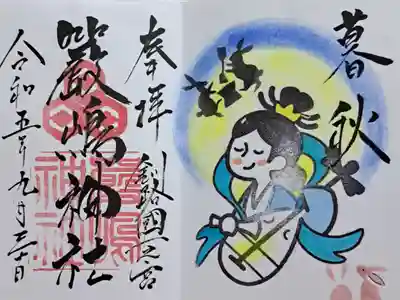 暮秋
奉拝
釧路國一之宮
嚴嶋神社
令和五年九月三十日